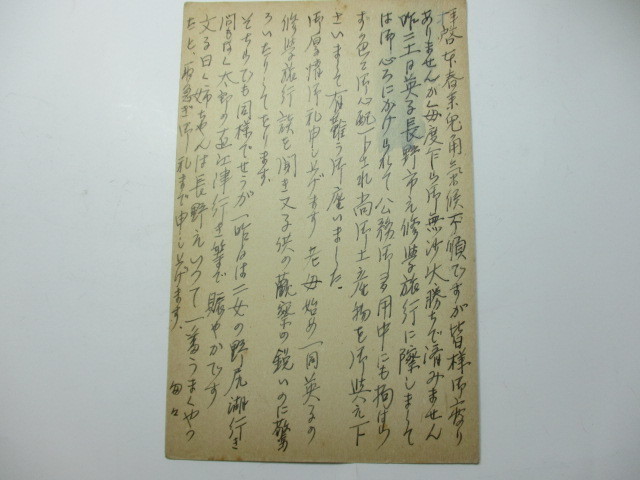 拝啓 本春来兎角気候不順ですが皆様御変り
ありませんか毎度乍ら御無沙汰勝ちで済みません
昨二十一日英子長野市え修学旅行に際しまして
は御心ろにかけられて公務御多用中にも拘はらず
する色々御心配下され尚御土産物を御与え下
さいまして有難う御座いました
御厚情御礼申し上げます 老母始め一同英子の
修学旅行談を聞き又子供の観察の鋭いのに驚
ろいたりしてをります。
そちらでも同様でせうが一昨日は二女の野尻湖行き
間もなく太郎の直江津行き等で賑やかです
文子曰く姉ちゃんは長野えいつて一番うまくやつ
たと、取急ぎ御礼まで申し上げます。 匆々